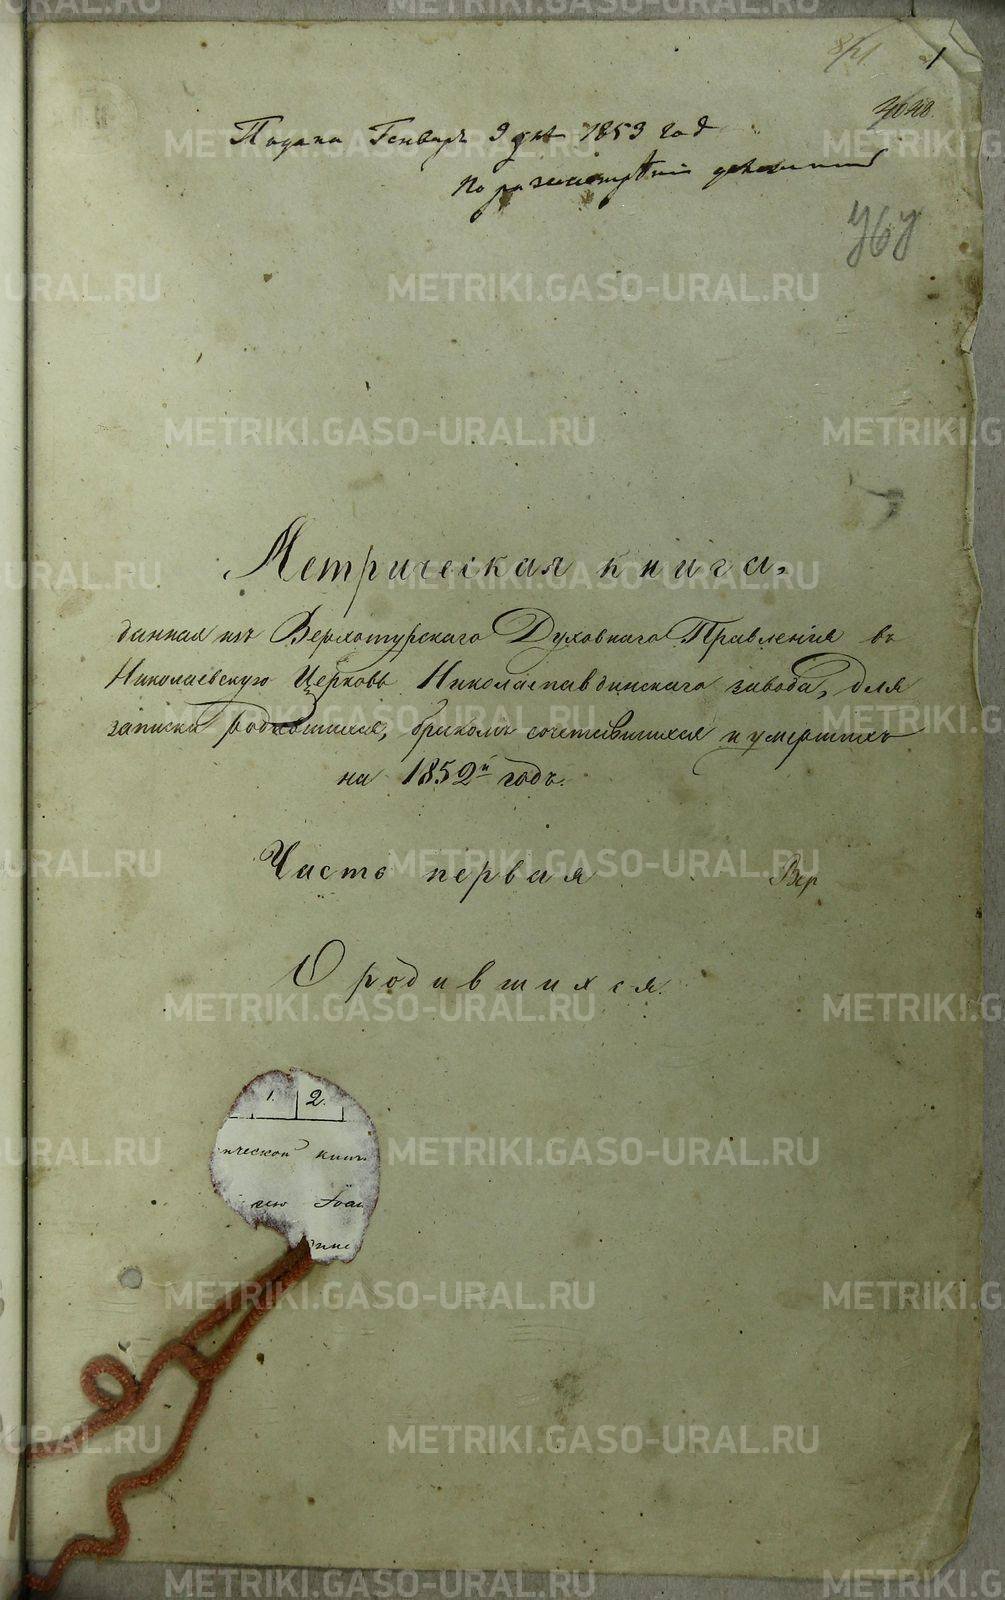 1
Подана Генваря 9 дня 1853 год
по разсмотрѣнiи
Метрическая книга,
данная изъ Верхотурскаго Духовнаго Правленiя въ
Николаевскую Церковь Николаепавдинскаго завода, для
записки родившихся, бракомъ сочетавшихся и умершихъ
на 1852й годъ.
Часть первая
Вер
О родившихся.
1. 2.
ической книг
METRIKI.GASO-URAL.RU